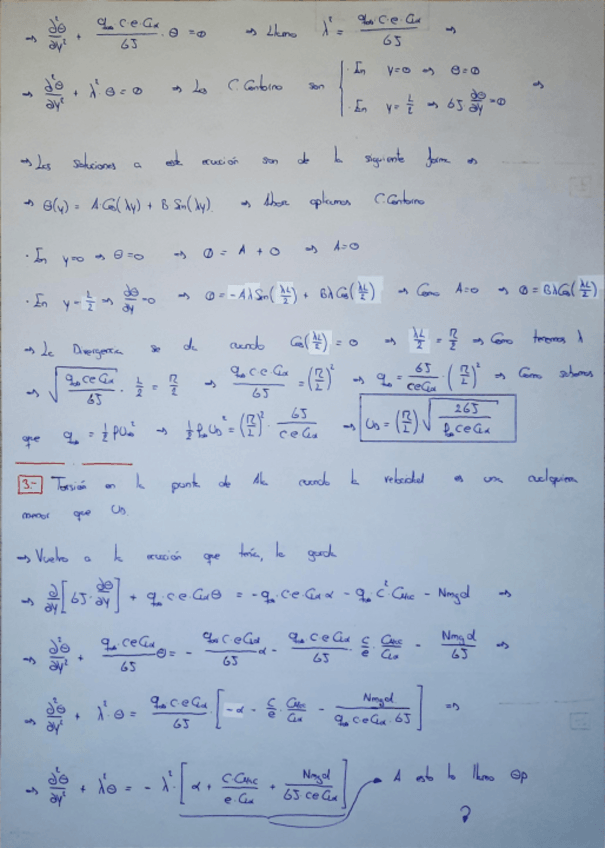 ⇒ ∂²θ/∂y² + (q∞·c·e·Clα)/GJ · θ = 0 ⇒ Llamo λ² = (q∞·c·e·Clα)/GJ ⇒
⇒ ∂²θ/∂y² + λ²·θ = 0 ⇒ Las C. Contorno son { · En y=0 ⇒ θ=0
· En y=L/2 ⇒ GJ ∂θ/∂y = 0 ⇒
⇒ Las soluciones a esta ecuación son de la siguiente forma ⇒
⇒ θ(y) = A·Cos(λy) + B Sen(λy) ⇒ Ahora aplicamos C. Contorno
· En y=0 ⇒ θ=0 ⇒ 0 = A + 0 ⇒ A=0
· En y=L/2 ⇒ ∂θ/∂y=0 ⇒ 0 = -AλSen(λL/2) + BλCos(λL/2) ⇒ Como A=0 ⇒ 0 = BλCos(λL/2)
⇒ La Divergencia se da cuando Cos(λL/2) = 0 ⇒ λL/2 = π/2 ⇒ Como tenemos λ
⇒ √((q∞·c·e·Clα)/GJ) · L/2 = π/2 ⇒ (q∞·c·e·Clα)/GJ = (π/L)² ⇒ q∞ = GJ/(c·e·Clα) · (π/L)² ⇒ Como sabemos
que q∞ = ½ρU∞² ⇒ ½ρ∞U_D² = (π/L)² · GJ/(c·e·Clα) ⇒ U_D = (π/L) √(2GJ/(ρ∞·c·e·Clα))
3.- Torsión en la punta de Ala cuando la velocidad es una cualquiera
menor que U_D
⇒ Vuelvo a la ecuación que tenía, la gorda
⇒ ∂/∂y[GJ·∂θ/∂y] + q∞·c·e·Clα θ = -q∞·c·e·Clα α - q∞ c²·Cmac - Nmgd ⇒
⇒ ∂²θ/∂y² + (q∞·c·e·Clα)/GJ θ = - (q∞·c·e·Clα)/GJ α - (q∞·c·e·Clα)/GJ · c/e · Cmac/Clα - Nmgd/GJ ⇒
⇒ ∂²θ/∂y² + λ²·θ = (q∞·c·e·Clα)/GJ · [-α - c/e · Cmac/Clα - Nmgd/(q∞·c·e·Clα·GJ)] ⇒
⇒ ∂²θ/∂y² + λ²θ = -λ²·[α + (c·Cmac)/(e·Clα) + Nmgd/(GJ·c·e·Clα)] A esto lo llamo θp
?